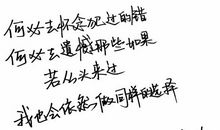 何必去怀念犯过的错
何必去遗憾那些如果
若从头来过
我也会依然做同样的选择